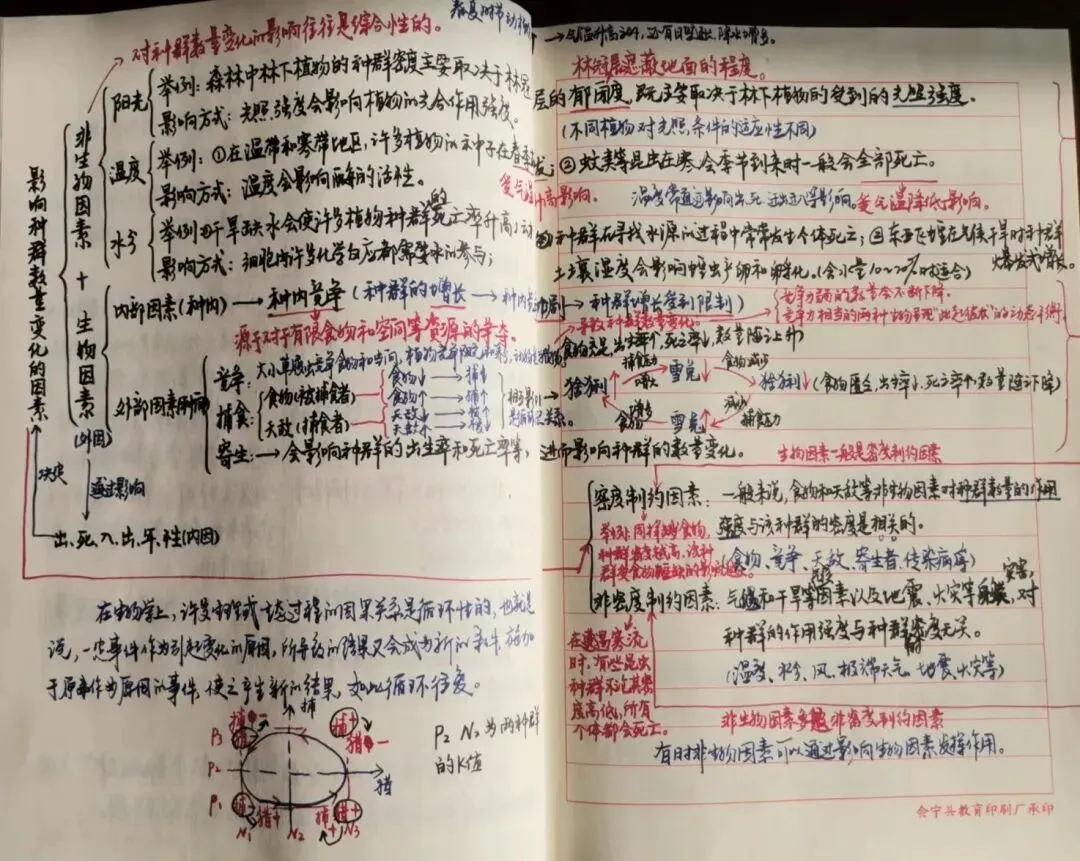 对种群数量变化的影响往往是综合性的。
春夏时节动植物 → 气温升高外，还有日照延长、降水增多。
林冠层遮蔽地面的程度。
影响种群数量变化的因素
非生物因素 + 生物因素
(外因)
阳光
举例：森林中林下植物的种群密度主要取决于林冠层的郁闭度，即主要取决于林下植物的受到的光照强度。
影响方式：光照强度会影响植物的光合作用强度。
(不同植物对光照条件的适应性不同)
温度
举例：①在温带和寒带地区，许多植物的种子在春季萌发；②蚊类等昆虫在寒冷季节到来时一般会全部死亡。
受气温升高影响。
影响方式：温度会影响酶的活性。
受气温降低影响。
水分
举例①干旱缺水会使许多植物种群的死亡率升高；动物种群在寻找水源的过程中常常发生个体死亡；
爆发式增长。
影响方式：细胞内许多化学反应都需要水的参与；
土壤湿度会影响
内部因素(种内) → 种内竞争 (种群的增长 → 种内竞争加剧 → 种群增长受到限制)
源于对于有限食物和空间等资源的争夺
导致种群数量变化。
竞争力弱的数量会不断下降。
竞争力相当的两种生物呈现"此起彼伏"的动态平衡
外部因素(种间)
竞争：
捕食：
食物(被捕食者)
天敌(捕食者)
食物↓ → 捕↓
食物↑ → 捕↑
相互影响
食物充足，出生率↑，死亡率↓，数量随之上升
猞猁↑ 捕食力 增大 雪兔↓ 食物减少 猞猁↓ (食物匮乏，出生率↓，死亡率↑，数量随之下降)
食物 增多 雪兔↑ 减少 捕食力
寄生：→ 会影响种群的出生率和死亡率等，进而影响种群的数量变化。
生物因素一般是密度制约因素
决定
通过影响
出、死、入、出、年、性(内因)
密度制约因素：一般来说，食物和天敌等非生物因素对种群数量的作用
强度与该种群的密度是相关的。
(食物、竞争、天敌、寄生者、传染病等)
举例：同样缺食物，
种群密度越高，该种
非密度制约因素：气温和干旱等因素以及地震、火灾等自然灾害，对
种群的作用强度与种群密度无关。
(温度、水分、风、极端天气、地震、火灾等)
在遭遇寒流
时，有些昆虫
种群不论其密
度高低，所有
个体都会死亡。
非生物因素多是非密度制约因素
有时非生物因素可以通过影响生物因素发挥作用。
在生物学上，许多生理或生态过程的因果关系是循环性的，也就是
说，一定事件作为引起变化的原因，所导致的结果又会成为新的条件，施加
于原来作为原因的事件，使之产生新的结果，如此循环往复。
捕
猎
P₃
P₂
P₁
N₁ N₂ N₃
P₂ N₂ 为两种群
的K值
会宁县教育印刷厂承印